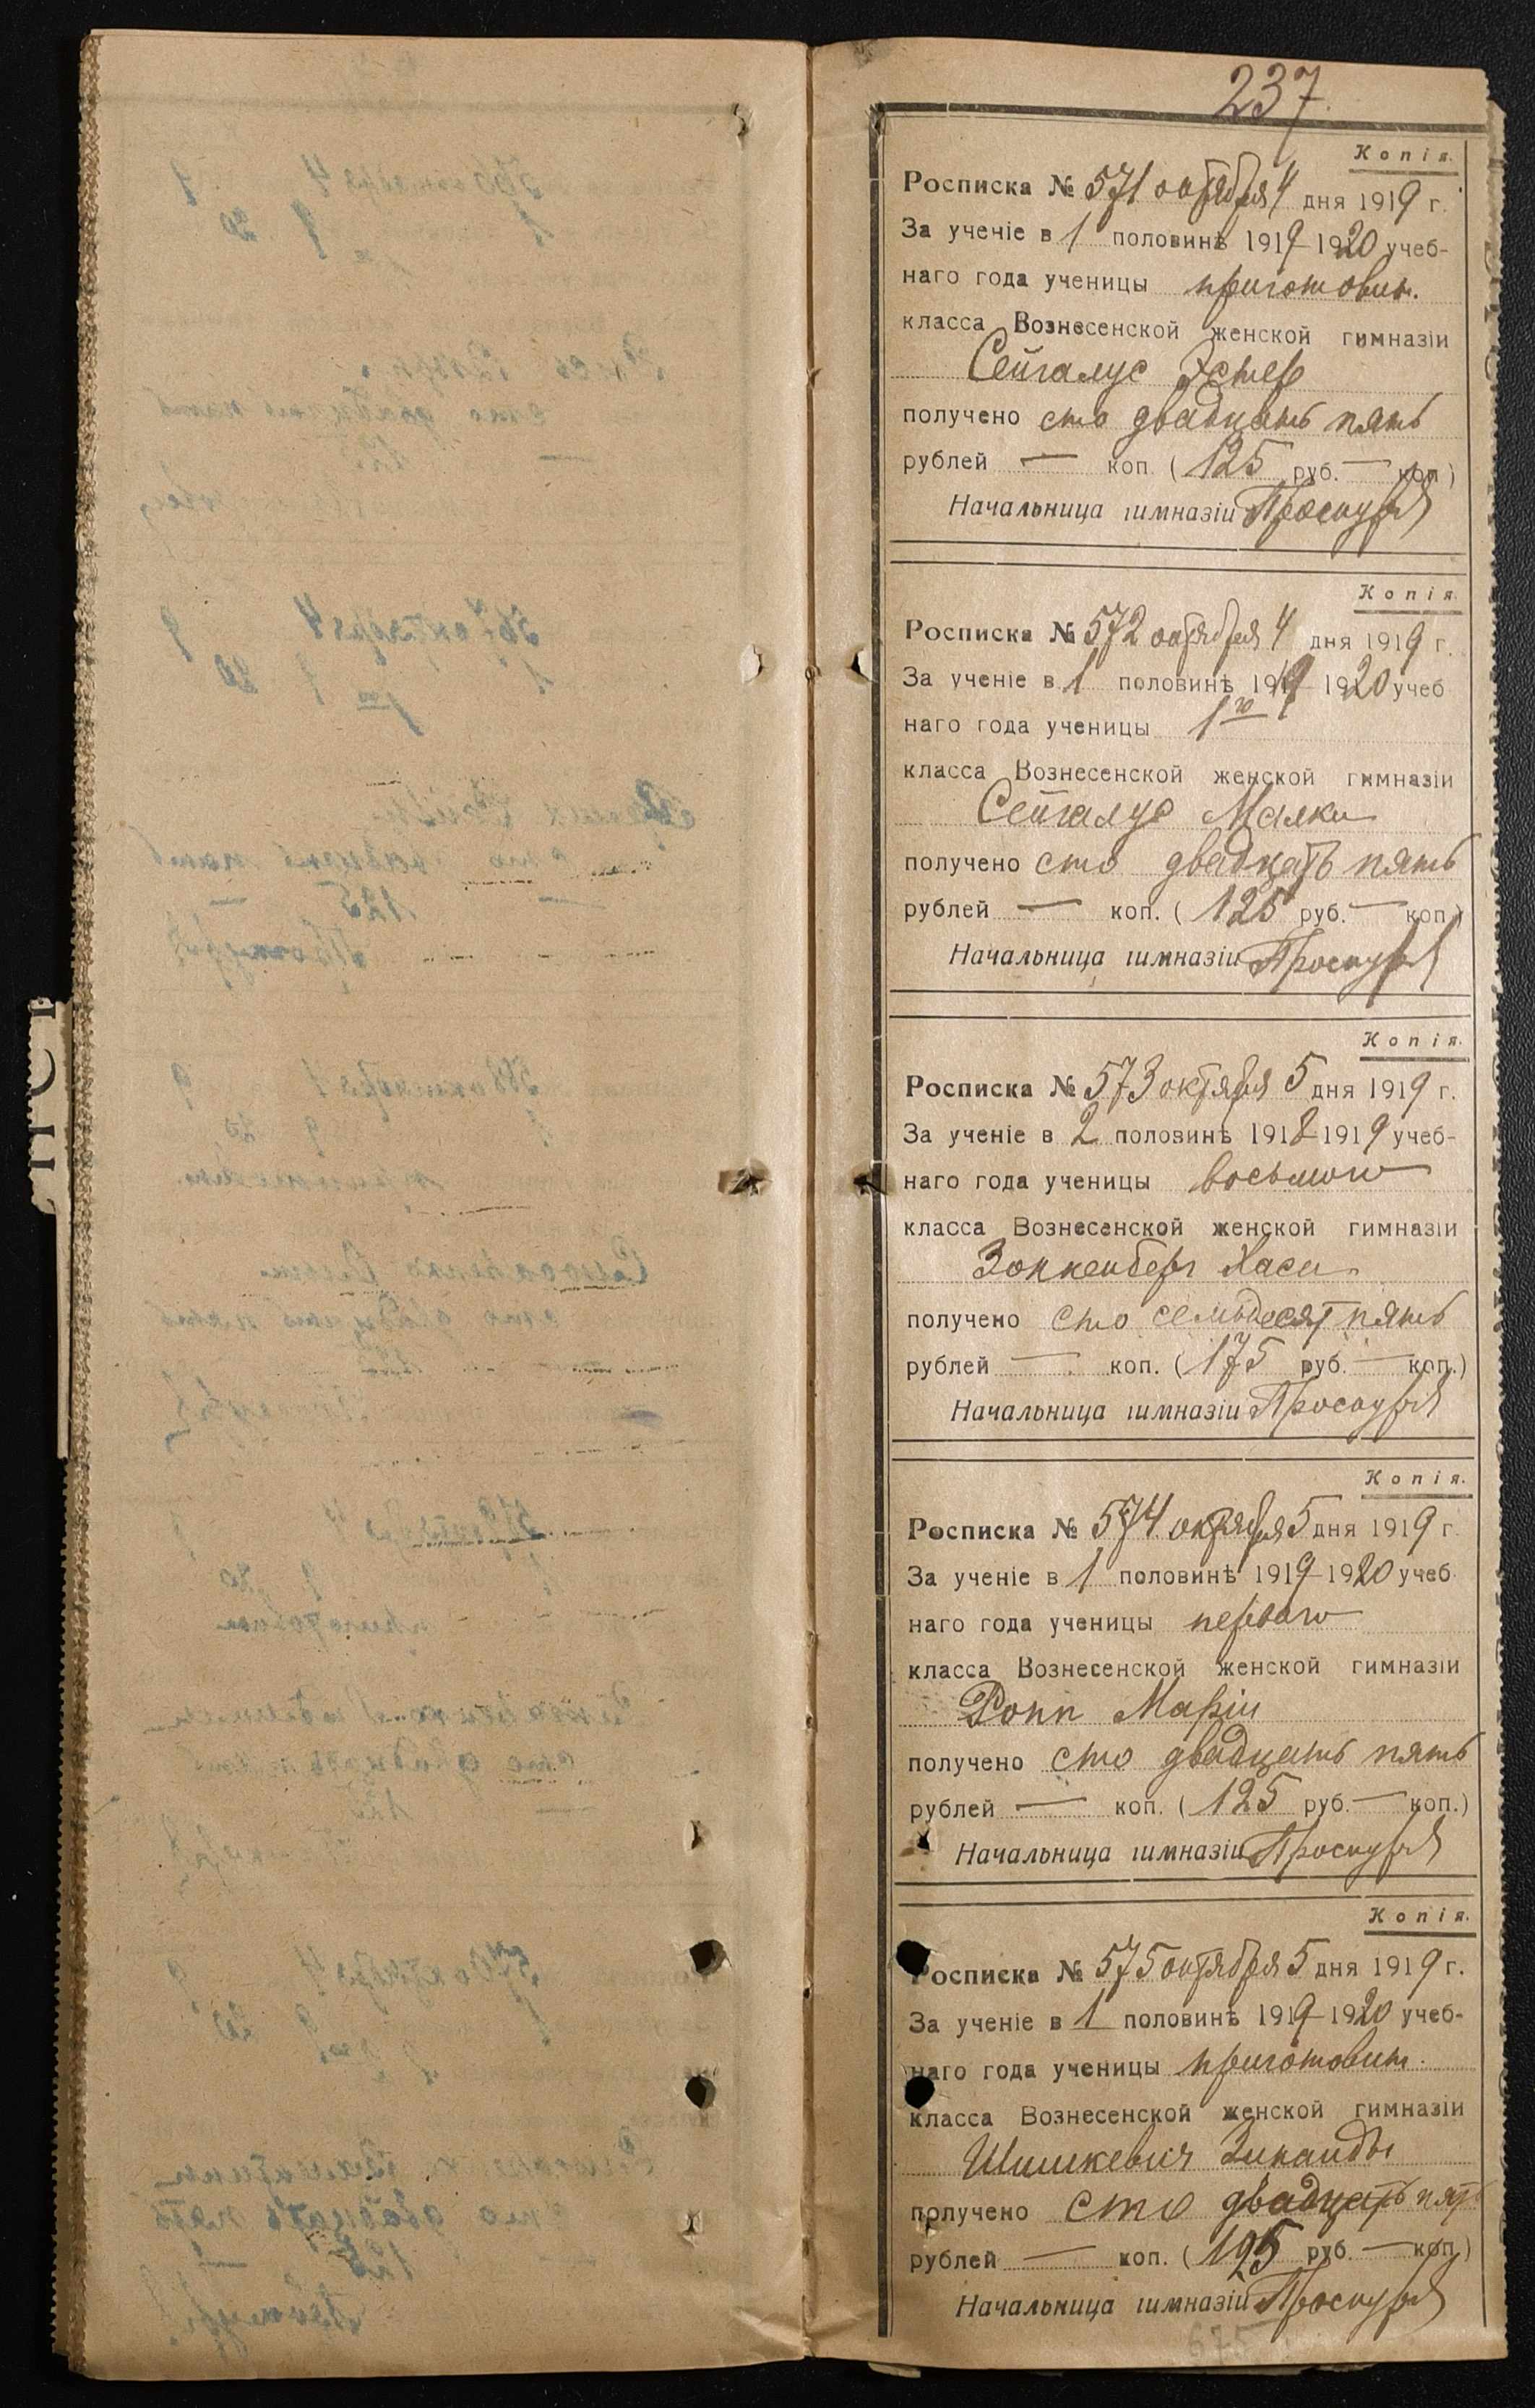 237
Копія.
Росписка № 571 октября 4 дня 1919 г.
За ученіе в 1 половинѣ 1919-1920 учеб-
наго года ученицы приготовит.
класса Вознесенской женской гимназіи
Сейгалус Эстер
получено сто двадцать пять
рублей — коп. (125 руб. — коп.)
Начальница гимназіи
Копія.
Росписка № 572 октября 4 дня 1919 г.
За ученіе в 1 половинѣ 1919 1920 учеб
наго года ученицы 1го
класса Вознесенской женской гимназіи
Сейгалус Малки
получено сто двадцать пять
рублей — коп. (125 руб. — коп.)
Начальница гимназіи
Копія.
Росписка № 573 октября 5 дня 1919 г.
За ученіе в 2 половинѣ 1918-1919 учеб-
наго года ученицы восьмого
класса Вознесенской женской гимназіи
Зонненберг Хаси
получено сто семьдесят пять
рублей — коп. (175 руб. — коп.)
Начальница гимназіи
Копія.
Росписка № 574 октября 5 дня 1919 г.
За ученіе в 1 половинѣ 1919-1920 учеб
наго года ученицы перваго
класса Вознесенской женской гимназіи
Ропп Маріи
получено сто двадцать пять
рублей — коп. (125 руб. — коп.)
Начальница гимназіи
Копія.
Росписка № 575 октября 5 дня 1919 г.
За ученіе в 1 половинѣ 1919-1920 учеб-
наго года ученицы приготовит.
класса Вознесенской женской гимназіи
Шишкевич Зинаиды
получено сто двадцать пять
рублей — коп. (125 руб. — коп.)
Начальница гимназіи
675